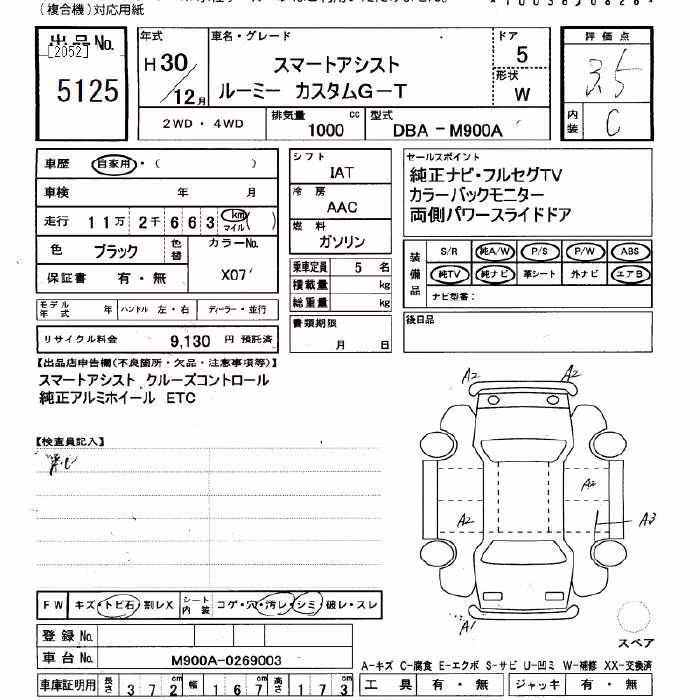 (複合機)対応用紙
出品No. 年式 車名・グレード ドア 評価点
[2052]
5125
H30/12月
スマートアシスト
ルーミー カスタムG-T
5
形状
W
3.5
内装 C
2WD・4WD 排気量 1000 cc 型式 DBA-M900A
車歴 自家用・( )
車検 年 月
走行 11万2千663 km マイル ( )
色 ブラック 色替 カラーNo.
X07
保証書 有・無
モデル年式 年 ハンドル 左・右 ディーラー・並行
リサイクル料金 9,130 円 預託済
シフト
IAT
冷房
AAC
燃料
ガソリン
乗車定員 5 名
積載量 kg
総重量 kg
書類期限
月 日
セールスポイント
純正ナビ・フルセグTV
カラーバックモニター
両側パワースライドドア
装備品 S/R 純A/W P/S P/W ABS
純TV 純ナビ 革シート 外ナビ エアB
ナビ型番:
後日品
【出品店申告欄(不良箇所・欠品・注意事項等)】
スマートアシスト クルーズコントロール
純正アルミホイール ETC
【検査員記入】
A2 A2
A2
A2
A3
A1
スペア
FW キズ・トビ石・割レX シート内装 コゲ・穴・汚レ・シミ・破レ・スレ
登録No.
車台No. M900A-0269003
車庫証明用 長さ 372 cm 幅 167 cm 高さ 173 cm
A-キズ C-腐食 E-エクボ S-サビ U-凹ミ W-補修 XX-交換済
工具 有・無 ジャッキ 有・無